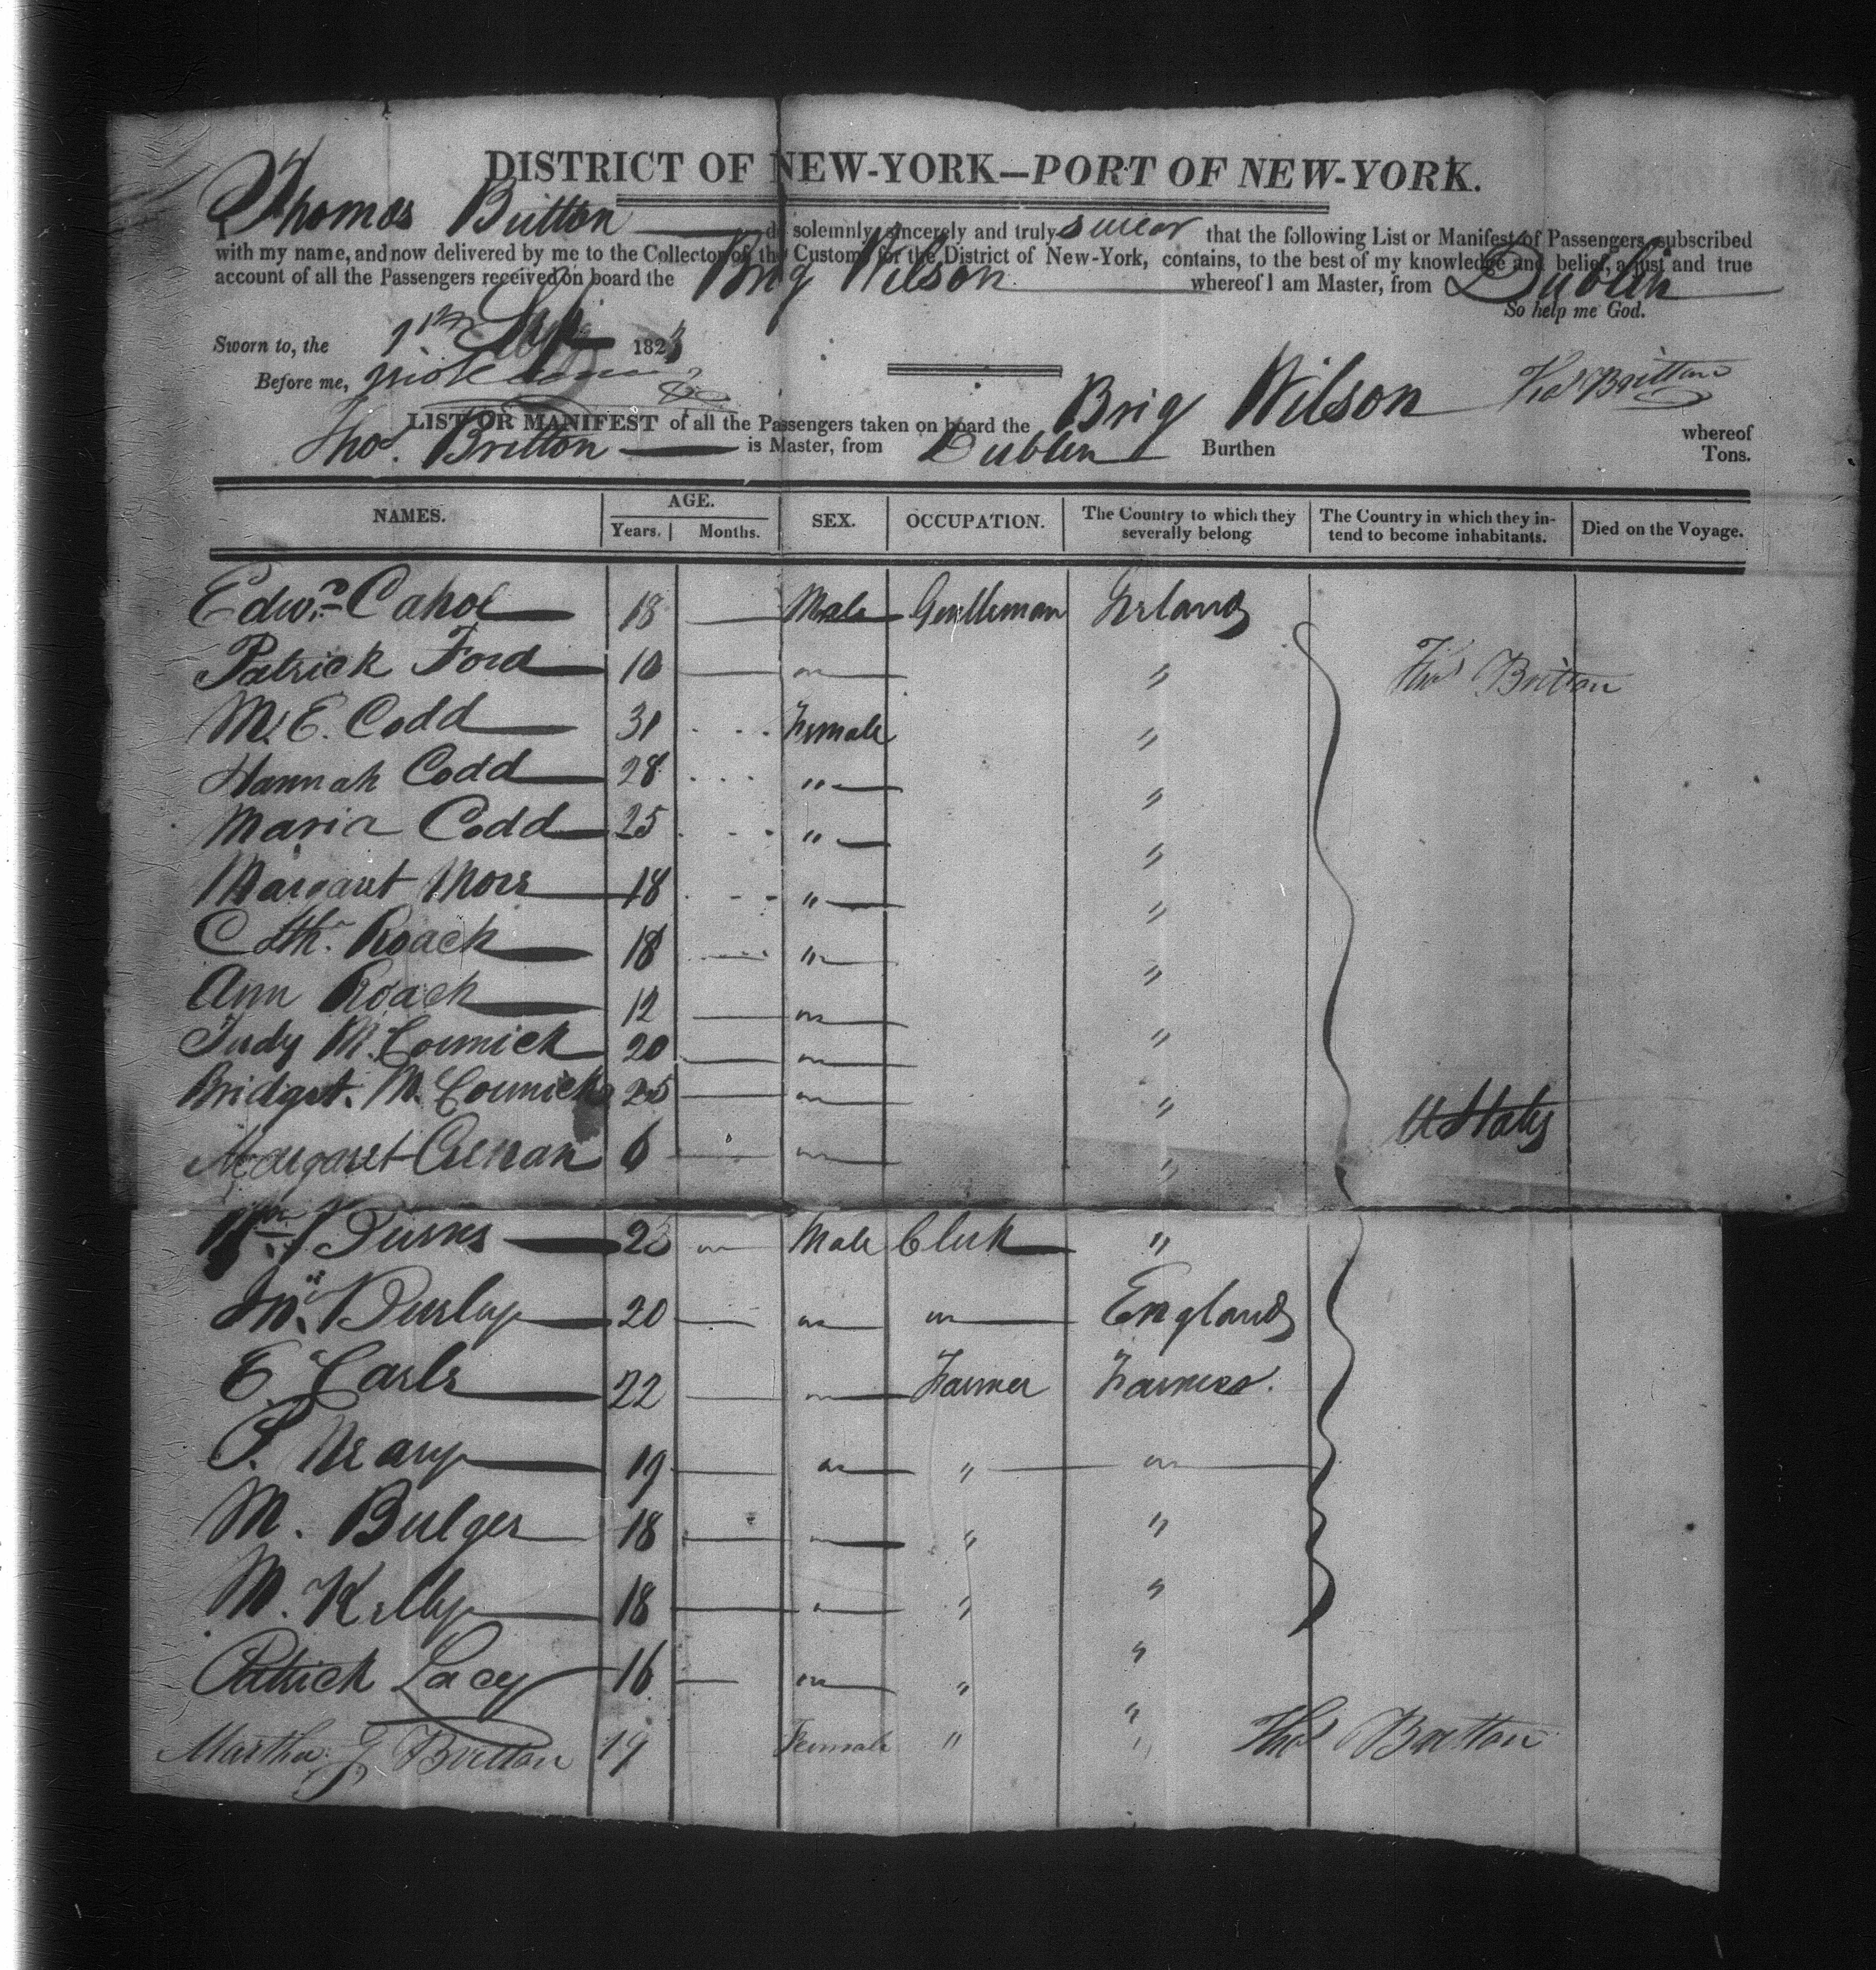 DISTRICT OF NEW-YORK—PORT OF NEW-YORK.
Thomas Britton do solemnly, sincerely and truly swear that the following List or Manifest of Passengers subscribed
with my name, and now delivered by me to the Collector of the Customs for the District of New-York, contains, to the best of my knowledge and belief, a just and true
account of all the Passengers received on board the Brig Wilson whereof I am Master, from Dublin
So help me God.
Sworn to, the Sep 182
Before me,
Thos Britton
LIST OR MANIFEST of all the Passengers taken on board the Brig Wilson whereof
Thos. Britton is Master, from Dublin Burthen Tons.
NAMES. AGE. Years. Months. SEX. OCCUPATION. The Country to which they severally belong The Country in which they intend to become inhabitants. Died on the Voyage.
Edwd Cahol 18 Male Gentleman Irland
Patrick Ford 10 " "
Thos Britton
M. E. Codd 31 Female "
Hannah Codd 28 " "
Maria Codd 25 " "
Margaret More 18 " "
Cath. Roach 18 " "
Ann Roach 12 " "
Judy McCormick 20 " "
Bridget McCormick 25 " "
U States
Margaret 6 " "
Male Clerk "
20 " " England
E. Earle 22 " Farmer Farmers.
P. Neary 19 " " "
M. Bulger 18 " " "
M. Kelly 18 " " "
Patrick Lacy 16 " " "
Martha J Britton 19 Female " "
Thos Britton